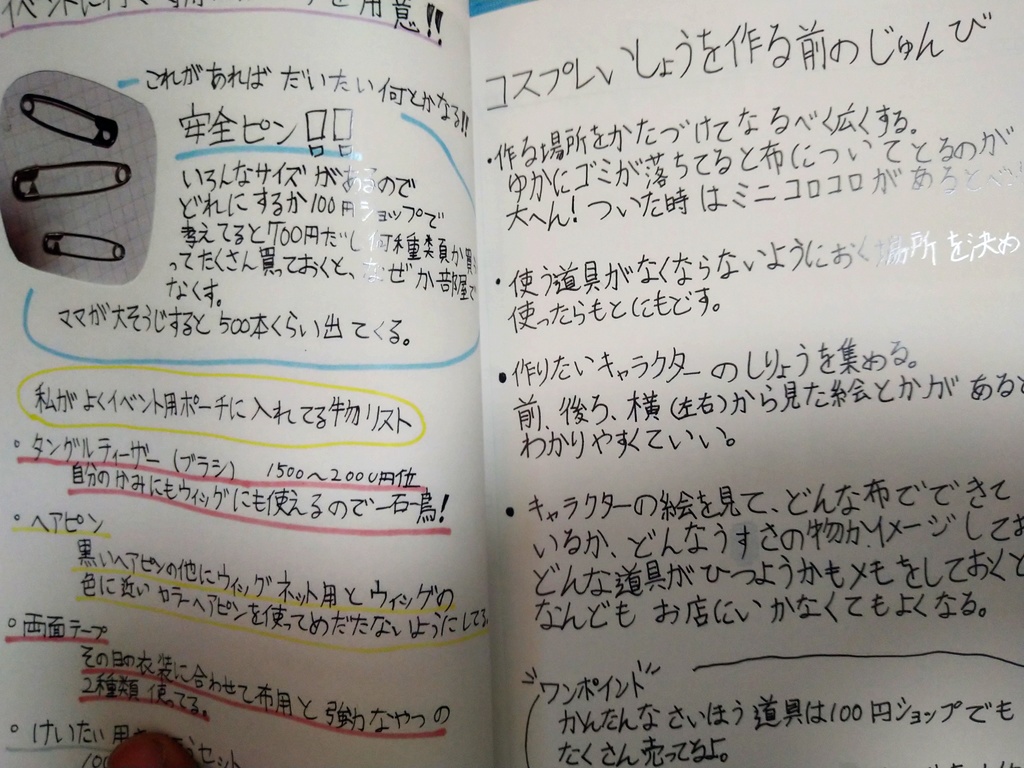 イベントに行く
用意!!
これがあれば だいたい何とかなる!!
安全ピン
いろんなサイズがあるので
どれにするか100円ショップで
考えてると700円だし何種類か買
ってたくさん買っておくと、なぜか部屋で
なくす。
ママが大そうじすると500本くらい出てくる。
私がよくイベント用ポーチに入れてる物リスト
・タングルティーザー(ブラシ) 1500〜2000円位
自分のかみにもウィッグにも使えるので一石一鳥!
・ヘアピン
黒いヘアピンの他にウィッグネット用とウィッグの
色に近いカラーヘアピンを使ってめだたないようにしてる。
・両面テープ
その日の衣装に合わせて布用と強力なやつの
2種類使ってる。
・けいたい用
セット
コスプレいしょうを作る前のじゅんび
・作る場所をかたづけてなるべく広くする。
ゆかにゴミが落ちてると布についてとるのが
大へん!ついた時はミニコロコロがあるとべ
・使う道具がなくならないようにおく場所を決め
使ったらもとにもどす。
・作りたいキャラクターのしりょうを集める。
前、後ろ、横(左右)から見た絵とかがあると
わかりやすくていい。
・キャラクターの絵を見て、どんな布でできて
いるか、どんなうすさの物かイメージしてお
どんな道具がひつようかもメモをしておくと
なんども お店にいかなくてもよくなる。
ワンポイント
かんたんなさいほう道具は100円ショップでも
たくさん売ってるよ。